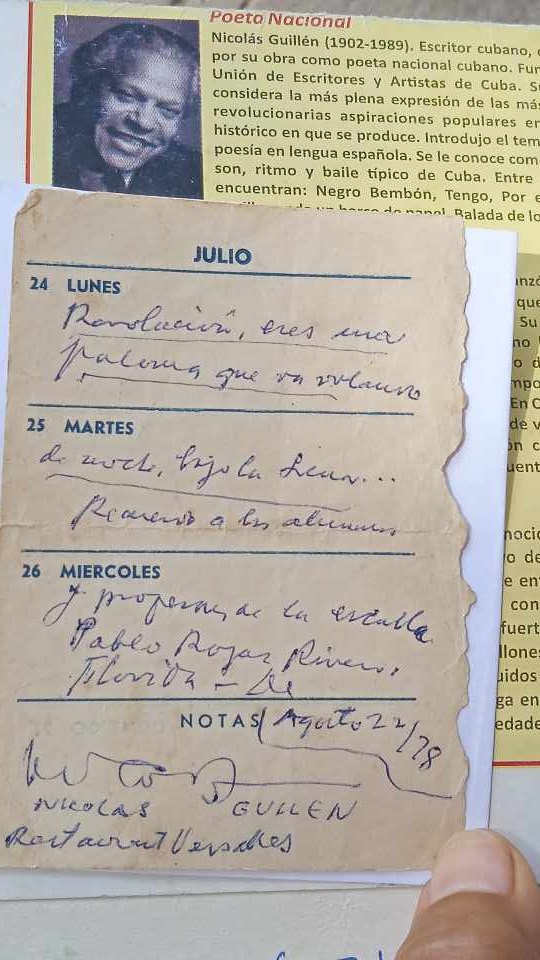 Poeta Nacional
Nicolás Guillén (1902-1989). Escritor cubano,
por su obra como poeta nacional cubano.
Unión de Escritores y Artistas de Cuba.
considera la más plena expresión de las
revolucionarias aspiraciones populares
histórico en que se produce. Introdujo el
poesía en lengua española. Se le conoce
son, ritmo y baile típico de Cuba. Entre
encuentran: Negro Bembón, Tengo, Por
de papel, Balada de
JULIO
24 LUNES
Revolución, eres una
paloma que va volando
25 MARTES
de noche, bajo la
Recuerdo a los alumnos
26 MIERCOLES
y profesores de la escuela
Pablo Rojas Rivero,
Florida -
NOTAS Agosto 22/78
NICOLAS GUILLEN
Restaurant Versalles